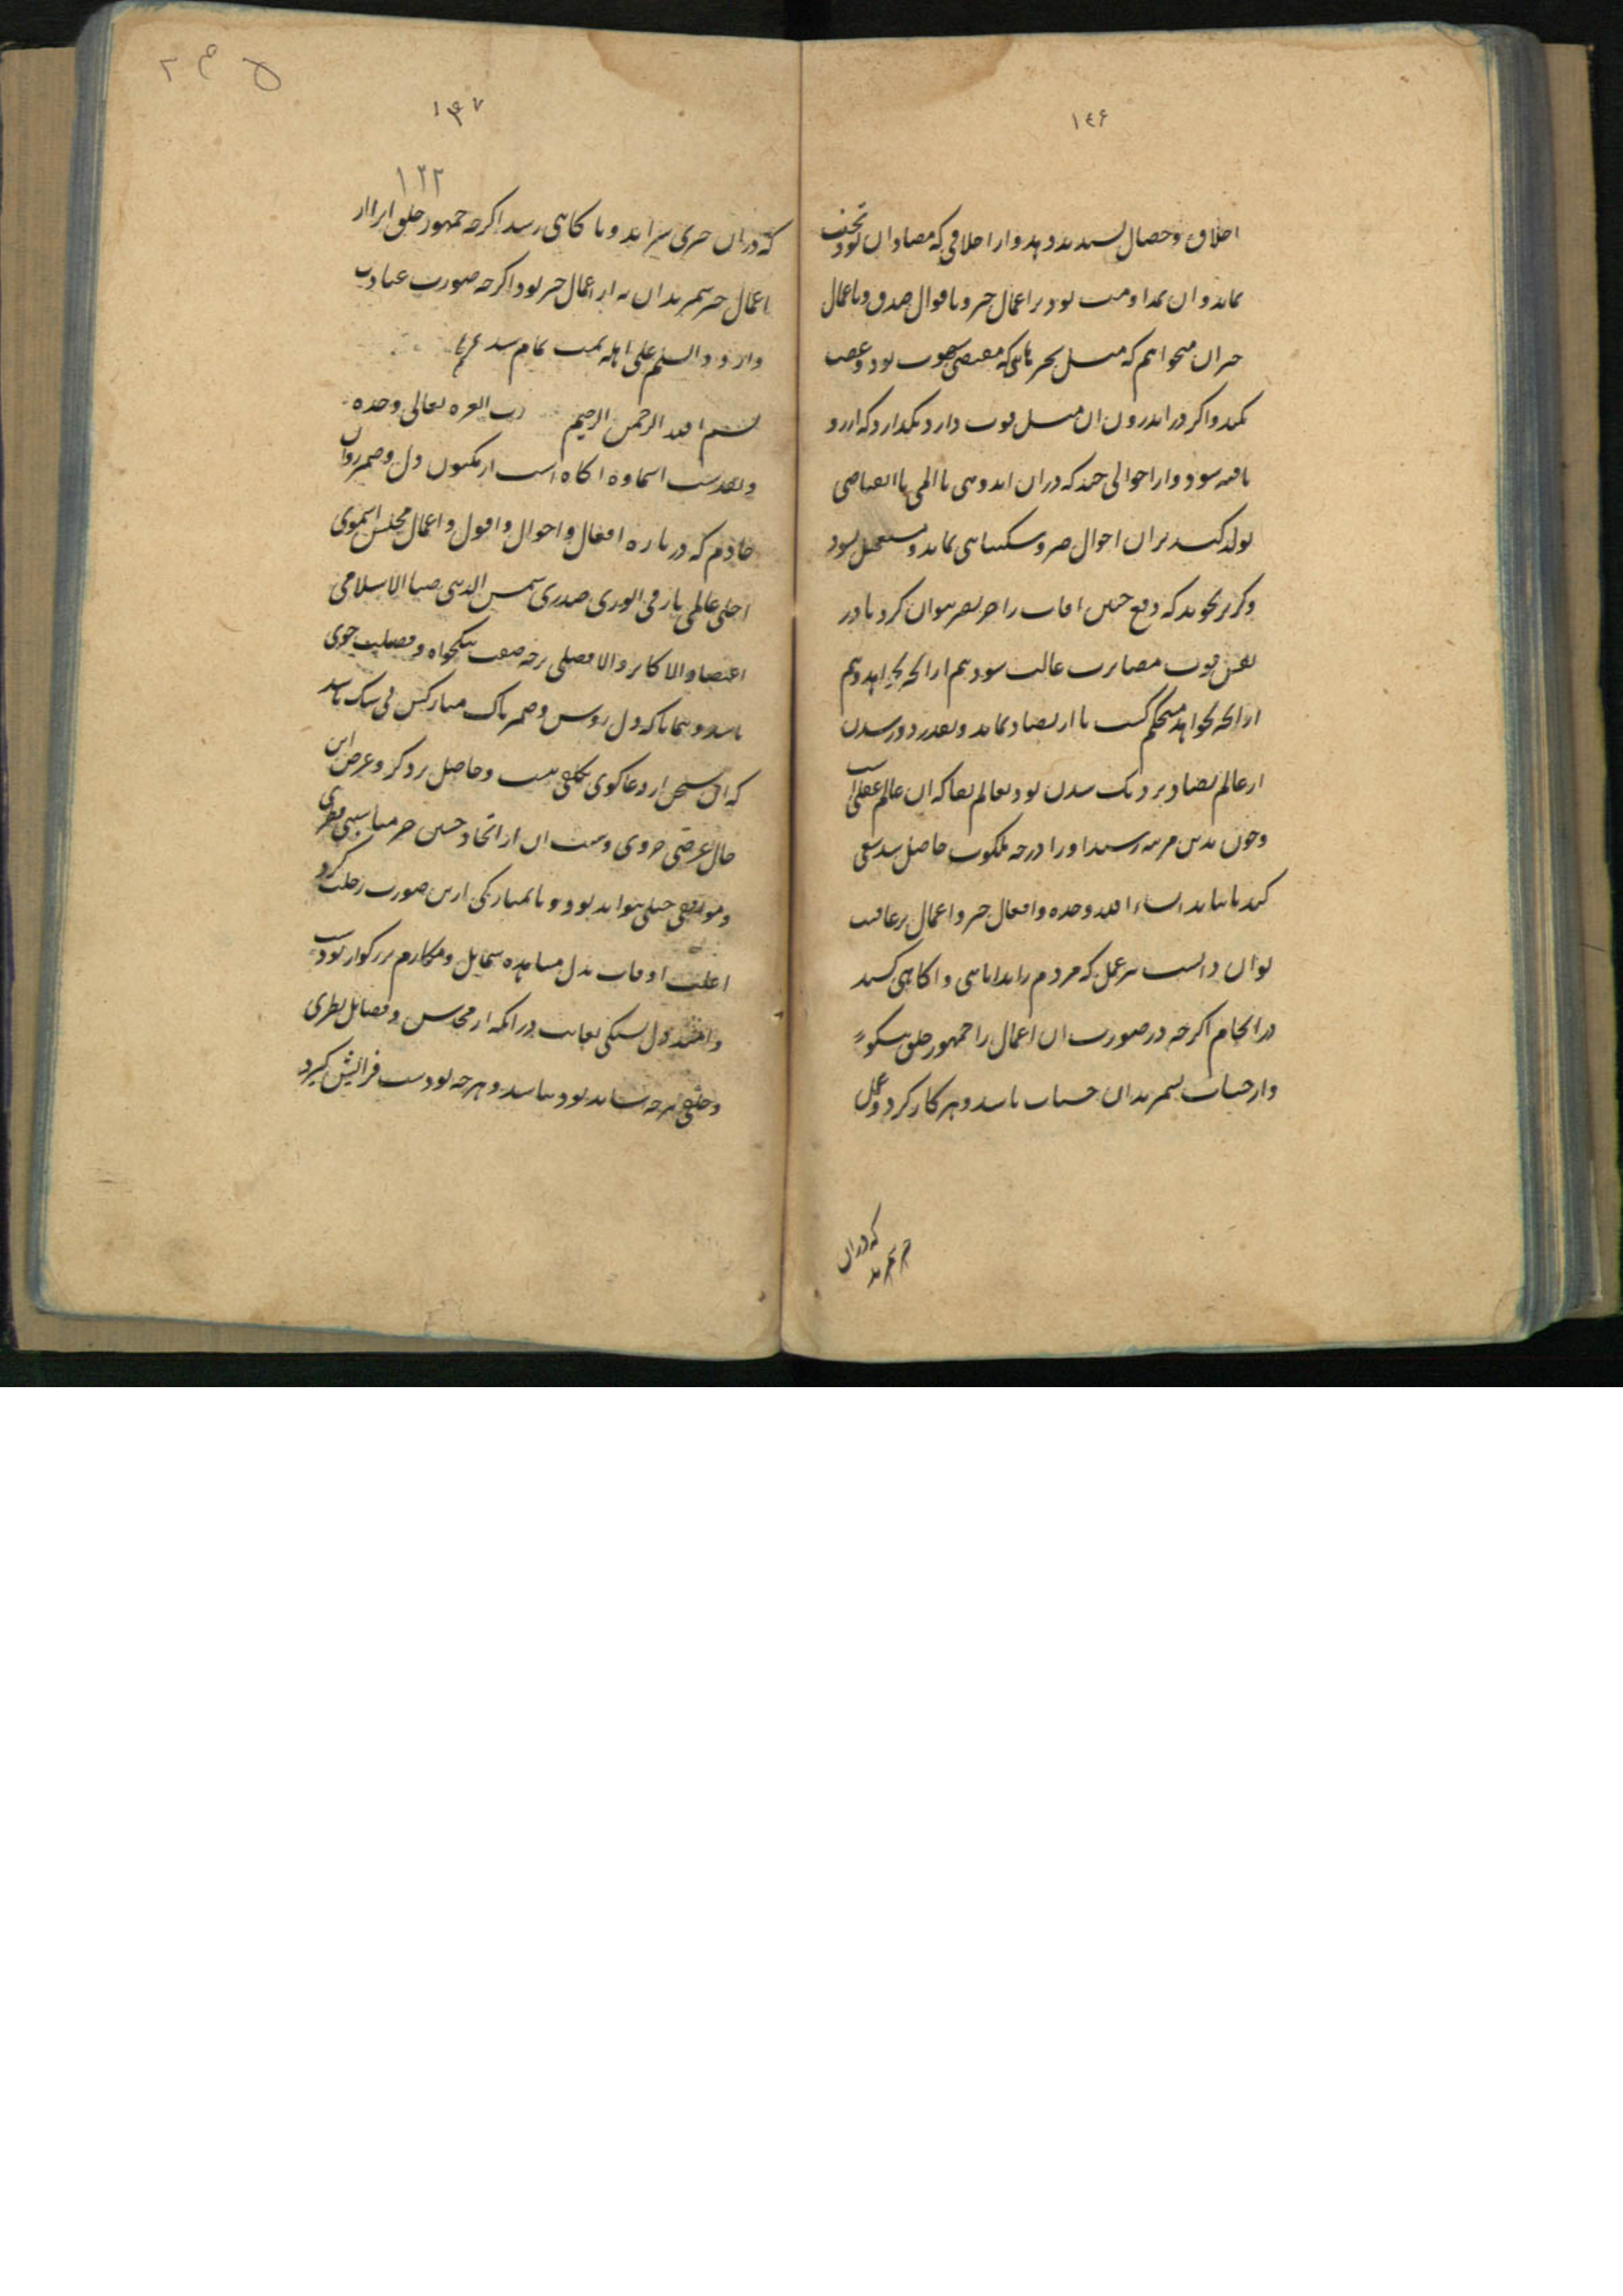 ۱۴۶
اخلاق و خصال پسندیده دهد و از اخلاقی که مضاد آن بود تجنب
نماید و آن بمداومت بود بر اعمال خیر و باقوال صدق و باعمال
خیر آن میخواهم که میل بحیزهائی که مقتضی بود و غضب
نکند و اگر در اندرون آن میل قوت دارد نگذارد که از رو
یافته شود و از احوالی چند که در آن اندوهی یا المی یا انقباضی
تولد کند بر آن احوال صبر و شکیبائی نماید و مستعجل نبود
و نگوید که دفع چنین افات را جز بصبر نتوان کرد تا در
نفس قوت مصابرت غالب شود هم از آنچه نخواهد و هم
از آنچه بخواهد مستحکم گشت تا از تضاد نماید و بقدر دور شدن
از عالم تضاد نزدیک شدن بود بعالم بقا که آن عالم عقل است
و چون بدین مرتبه رسید او را درجه ملکوت حاصل شد سعی
کند تا بیابد انشاء الله وحده و افعال خیر و اعمال بر عاقبت
توان دانست هر عمل که مردم را بدانائی و اگاهی کشد
در انجام اگرچه در صورت آن اعمال را جمهور خلق نیکو
و از حسنات نشمرند آن حسنات باشد و هر کار کرد و عمل
که در آن
۱۴۷
۱۲۲
که در آن خیری نیز آید و ناگاهی رسد اگرچه جمهور خلق آنرا از
اعمال خیر شمرند آن نه از اعمال خیر بود اگرچه صورت عبادت
دارد و السلم علی اهله تمت تمام شد
بسم الله الرحمن الرحیم رب العزه تعالی وحده
و تقدست اسماوه آگاه است از مکنون دل و ضمیر روان
خادم که در باره افعال و احوال و اقول و اعمال مجلس اسموی
اجلی عالمی بارقی الوری صدری شمس الدینی ضیا الاسلامی
الاکابر و الافضلی بر چه صفت نیکخواه و فضیلت جوی
باشد و همانا که دل روشن و ضمیر پاک مبارکش بی شک باشد
که آن سخن از دعاگوی تکلفی نیست و حاصل بر دگر و غرض این
حال عرضی جزوی و نیست آن از اتحاد چنین جز مناسبتی فطری
و موافقتی جبلی نتواند بود و تا بمبارکی ازین صورت رحلت کرد
اغلب اوقات بدل مشاهده شمایل و مکارم بزرگوار بوده است
و دل بستگی بغایت در آنکه از محاسن و فضایل نظری
و خلقی هرچه شاید بود بباشد و هرچه بودست فزایش گیرد